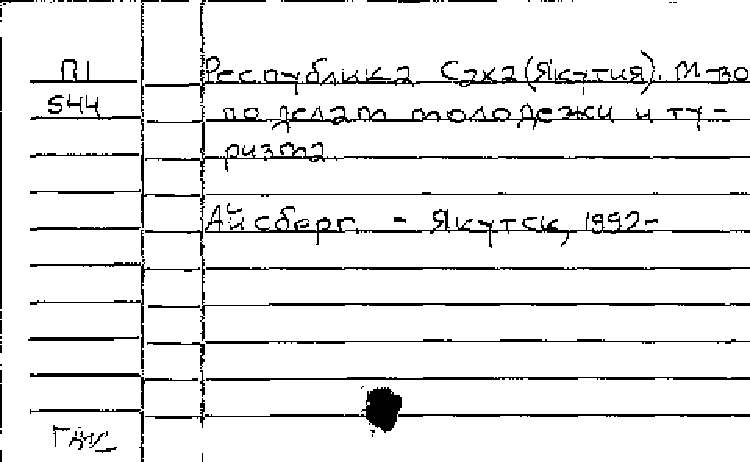 П1
544
Республика Саха (Якутия). М-во
по делам молодежи и ту-
ризма.
Айсберг. - Якутск, 1992-